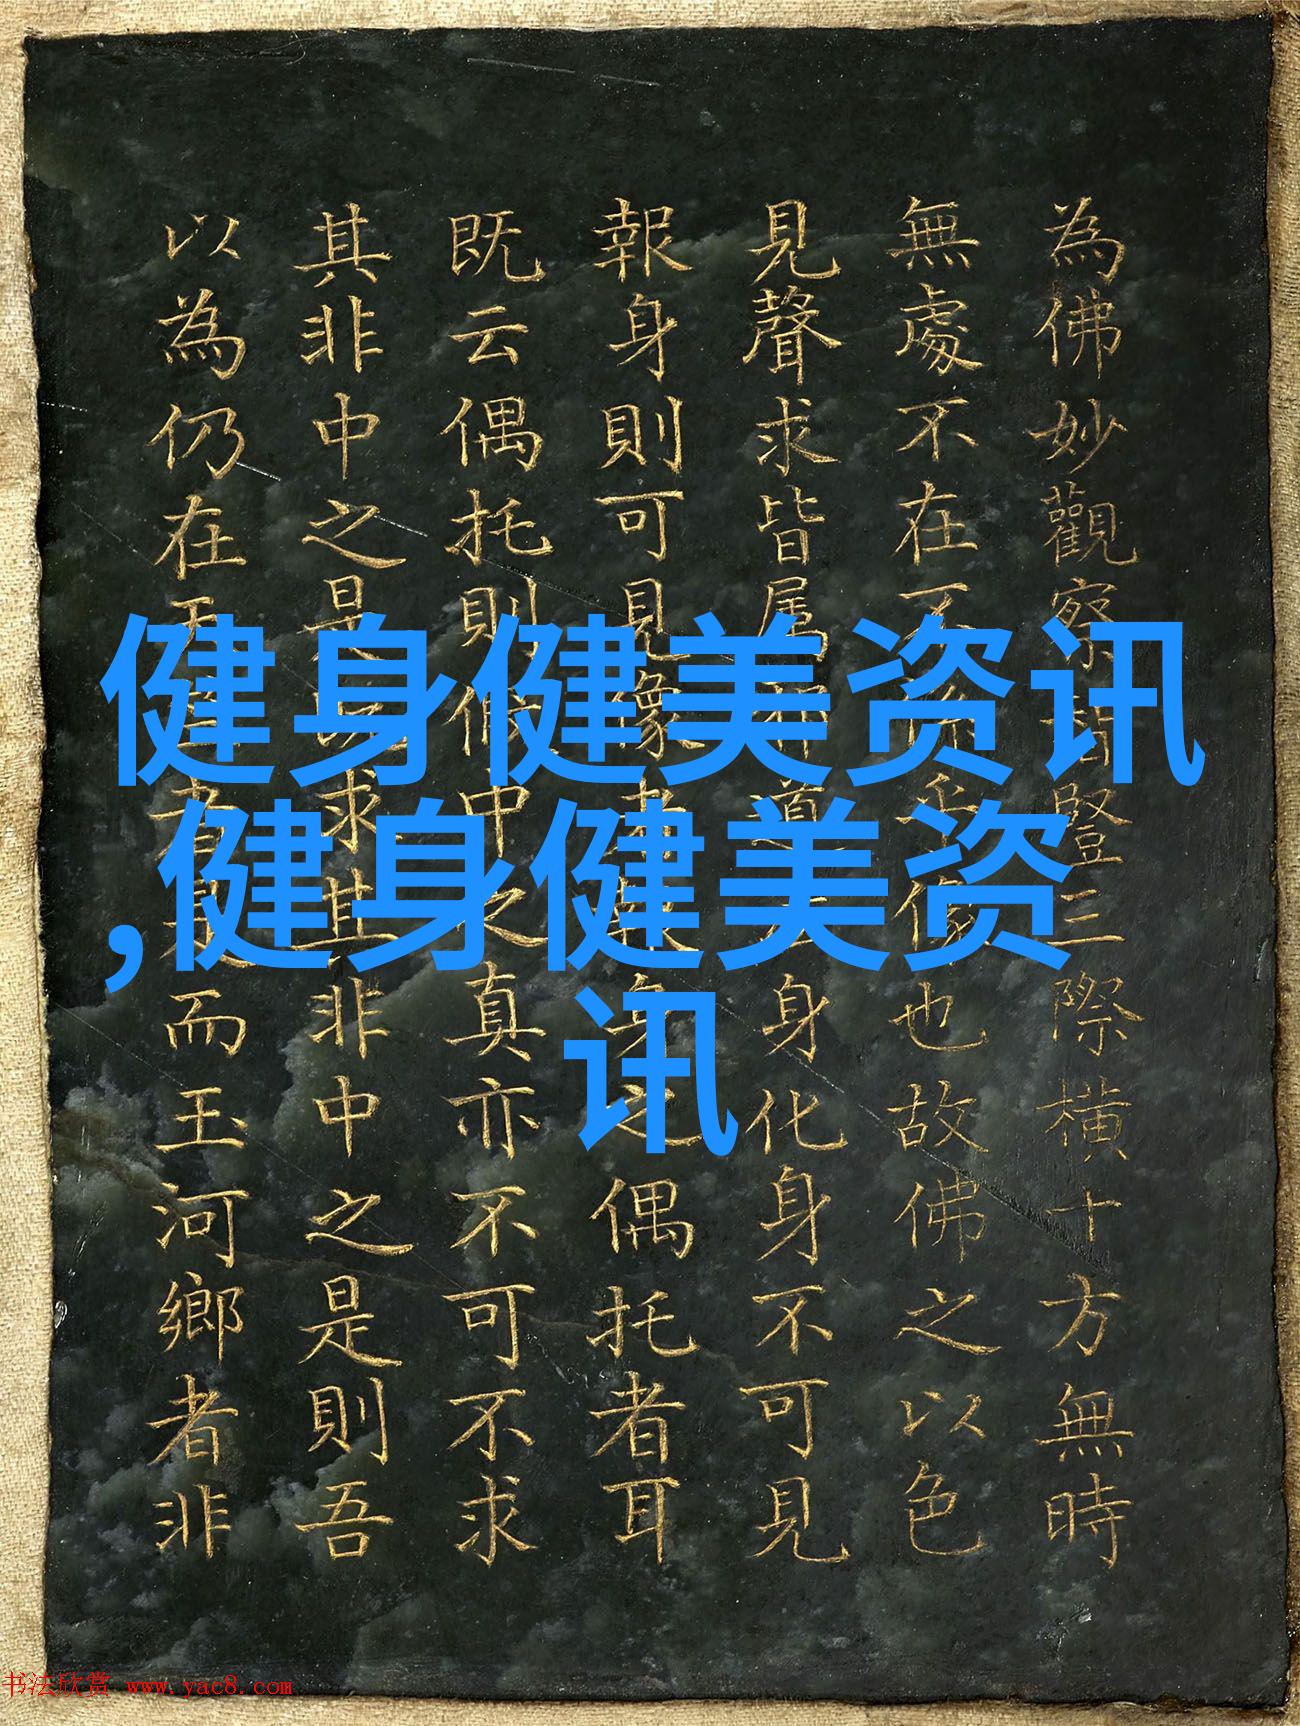 為佛妙觀察智證三際橫十方無時
無處不在不也故佛之以色
見聲求皆屬身化身不可見
報身則可見像身之偶托者耳
既云偶托則假中之真亦不可不求
其非中之是以求其非中之是則吾
以為仍在玉者是而玉河鄉者非
健身健美资讯
,健身健美资
讯
书法欣赏 www.yac8.com